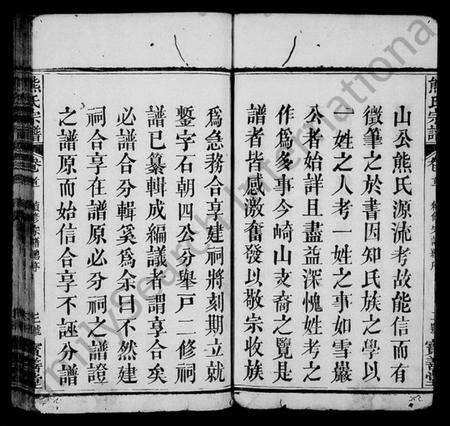 山公熊氏源流考故能信而有
徵筆之於書因知氏族之學以
一姓之人考一姓之事如雪巖
公者始詳且盡益深愧姓考之
作為多事今崎山支裔之覽是
譜者皆感激奮發以敬宗收族
為急務合享建祠將刻期立就
鏨字石朝四公分舉戸二修祠
譜已纂輯成編議者謂享合矣
必譜合分輯奚為余曰不然建
祠合享在譜原必分祠之譜證
之譜原而始信合享不誣分譜
熊氏宗譜
卷首
寶善堂
熊氏宗譜
卷首
寶善堂